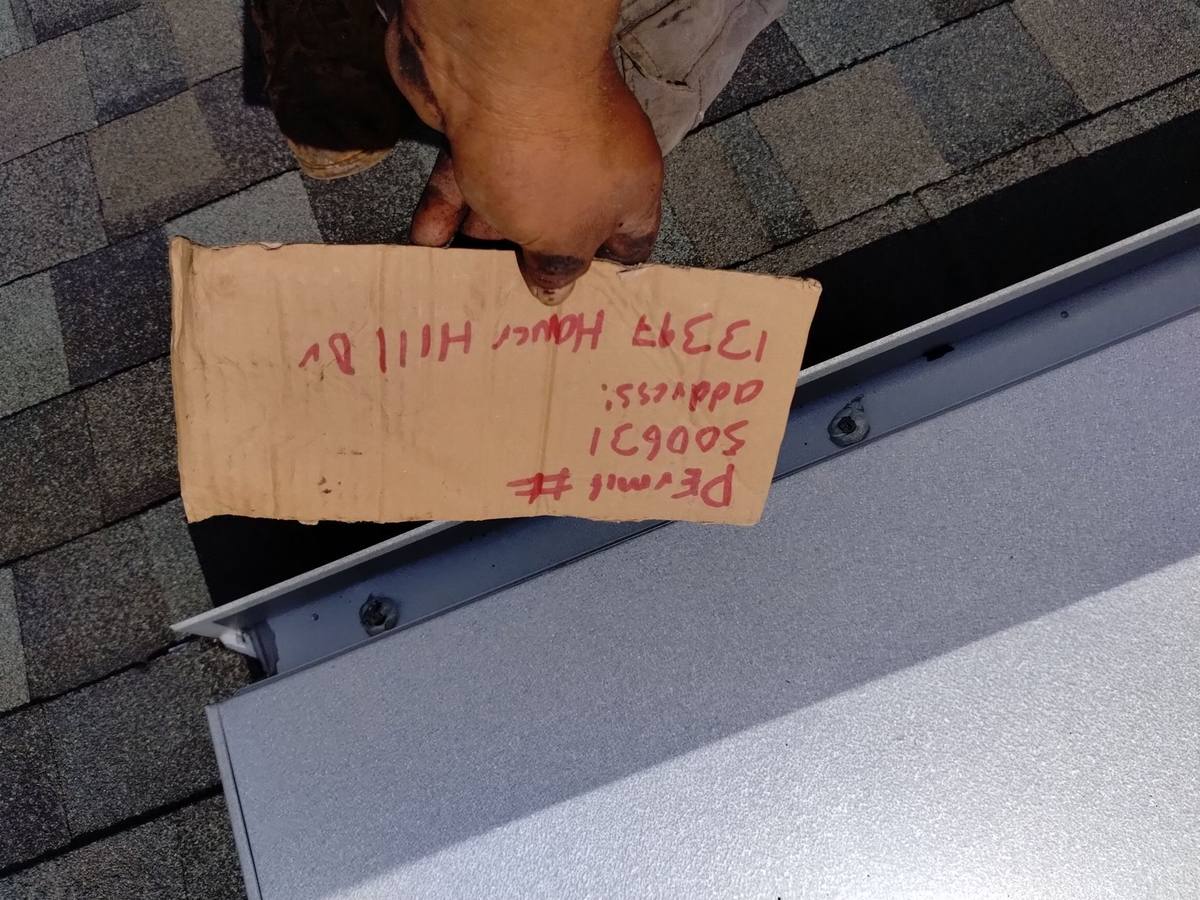 PErmit #
500631
address:
13397 Haver Hill Dr